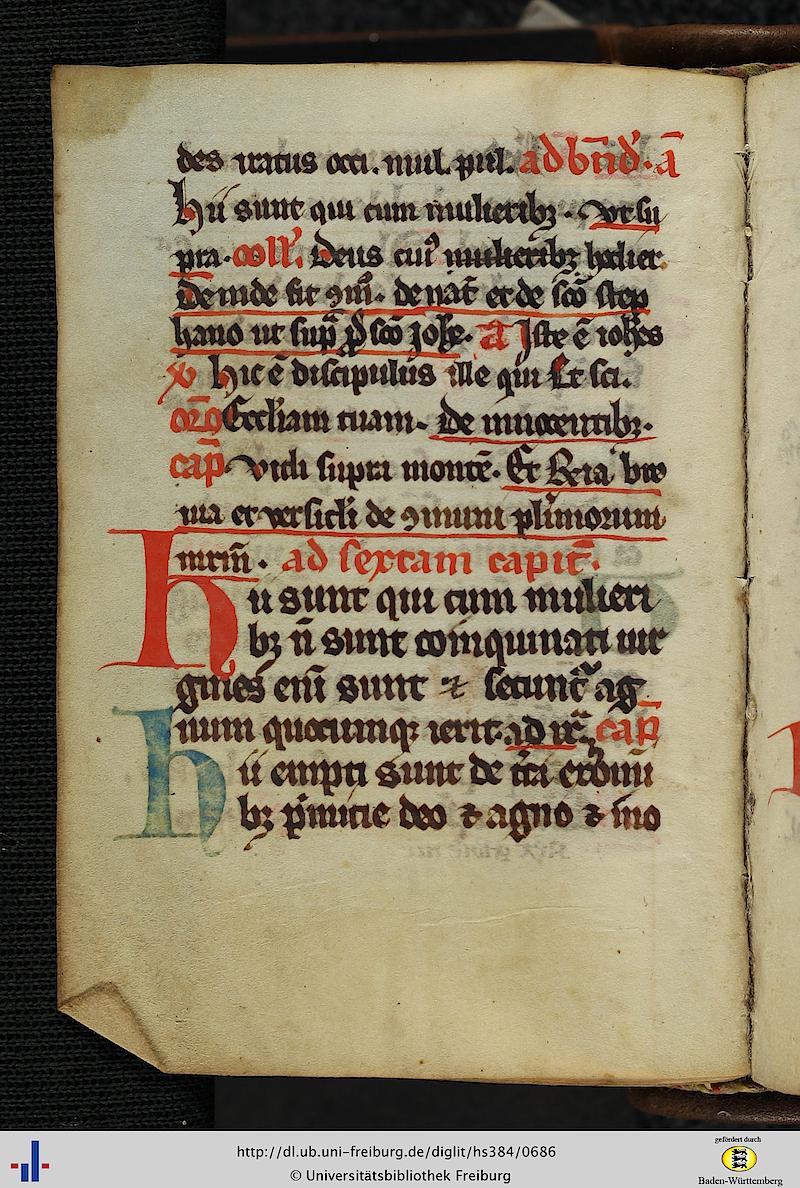 des iratus occi. mul. pūl. ad bn̄d'. ā
hii sunt qui cum mulierib3. vt su
pra. coll'. Deus cui9 mulierib3 hodier.
Deinde fit 9m̄. de nat̄ et de sc̄o step
hano ut sup̄ p̄ sc̄o Joh̄e. a Iste ē ioh̄es
v hic ē discipulus ille qui Et sci.
or̄o Eccl'iam tuam. De innocentib3.
cap̄. vidi supra montē. Et R̄ia bre
uia et versicl'i de 9muni pl'imorum
mrm̄. ad sextam capit̄.
Hii sunt qui cum mulieri
b3 n̄ sunt coinquinati uir
gines enī sunt ⁊ secunt̄ ag
num quocumq3 ierit. ad ix cap̄
hii empti sunt de t̄ra ex omni
b3 p̄micie deo ⁊ agno ⁊ in o
http://dl.ub.uni-freiburg.de/diglit/hs384/0686
© Universitätsbibliothek Freiburg
gefördert durch
Baden-Württemberg